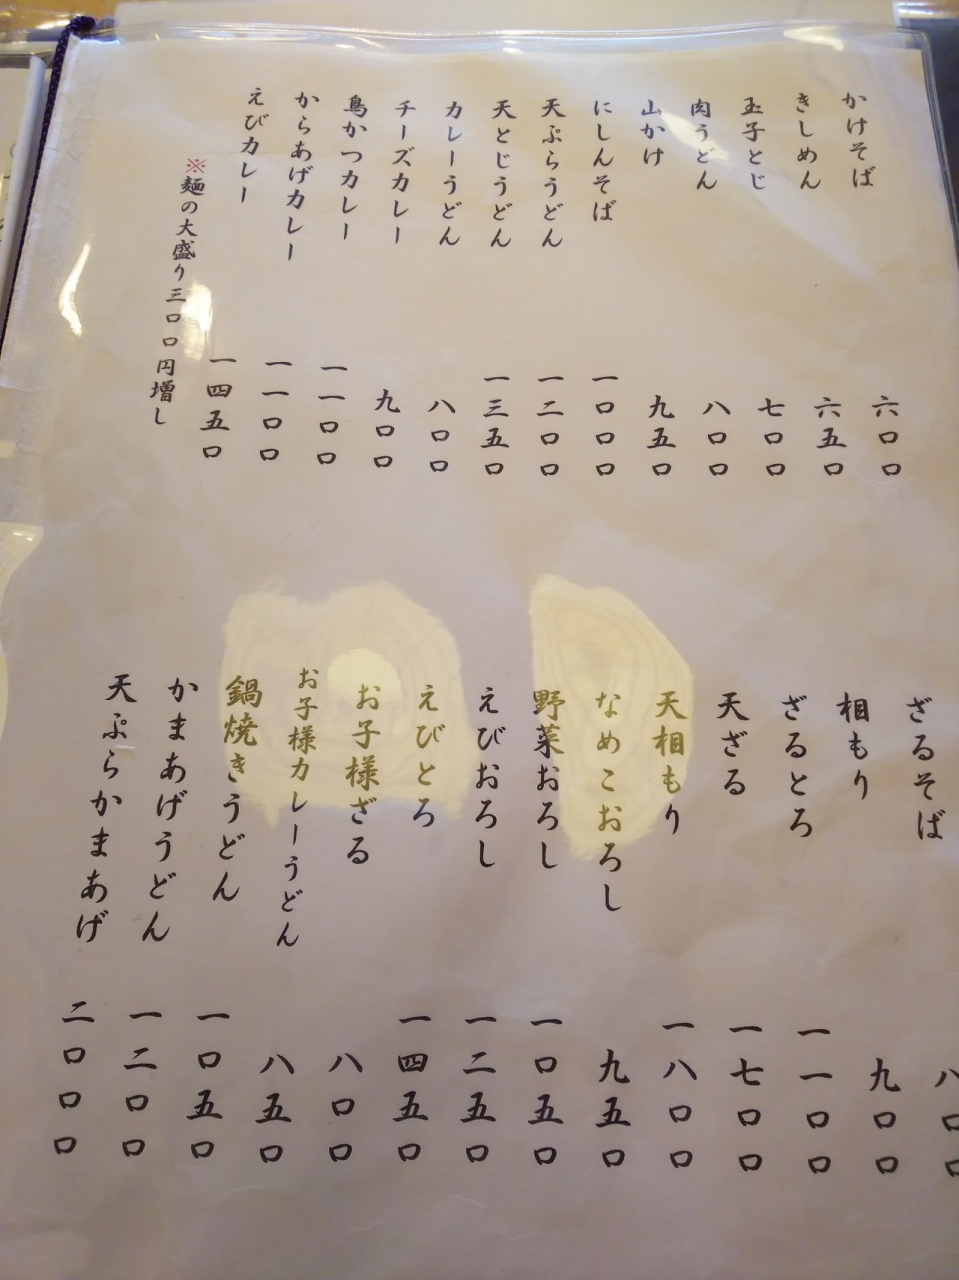 かけそば 六〇〇
きしめん 六五〇
玉子とじ 七〇〇
肉うどん 八〇〇
山かけ 九五〇
にしんそば 一〇〇〇
天ぷらうどん 一二〇〇
天とじうどん 一三五〇
カレーうどん 八〇〇
チーズカレー 九〇〇
鳥かつカレー 一一〇〇
からあげカレー 一一〇〇
えびカレー 一四五〇
※麺の大盛り三〇〇円増し
ざるそば 八〇〇
相もり 九〇〇
ざるとろ 一一〇〇
天ざる 一七〇〇
天相もり 一八〇〇
なめこおろし 九五〇
野菜おろし 一〇五〇
えびおろし 一二五〇
えびとろ 一四五〇
お子様ざる 八〇〇
お子様カレーうどん 八五〇
鍋焼きうどん 一〇五〇
かまあげうどん 一二〇〇
天ぷらかまあげ 二〇〇〇